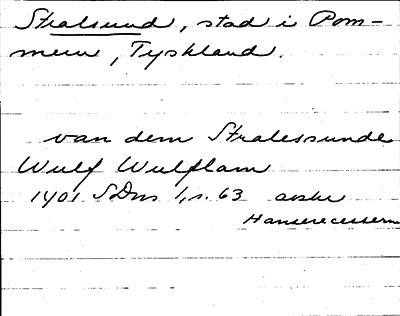 Stralsund, stad i Pom-
mern, Tyskland.
van dem Stralessunde
Wulf Wulflam
1401 SDns 1, s. 63 
Hanserecessern